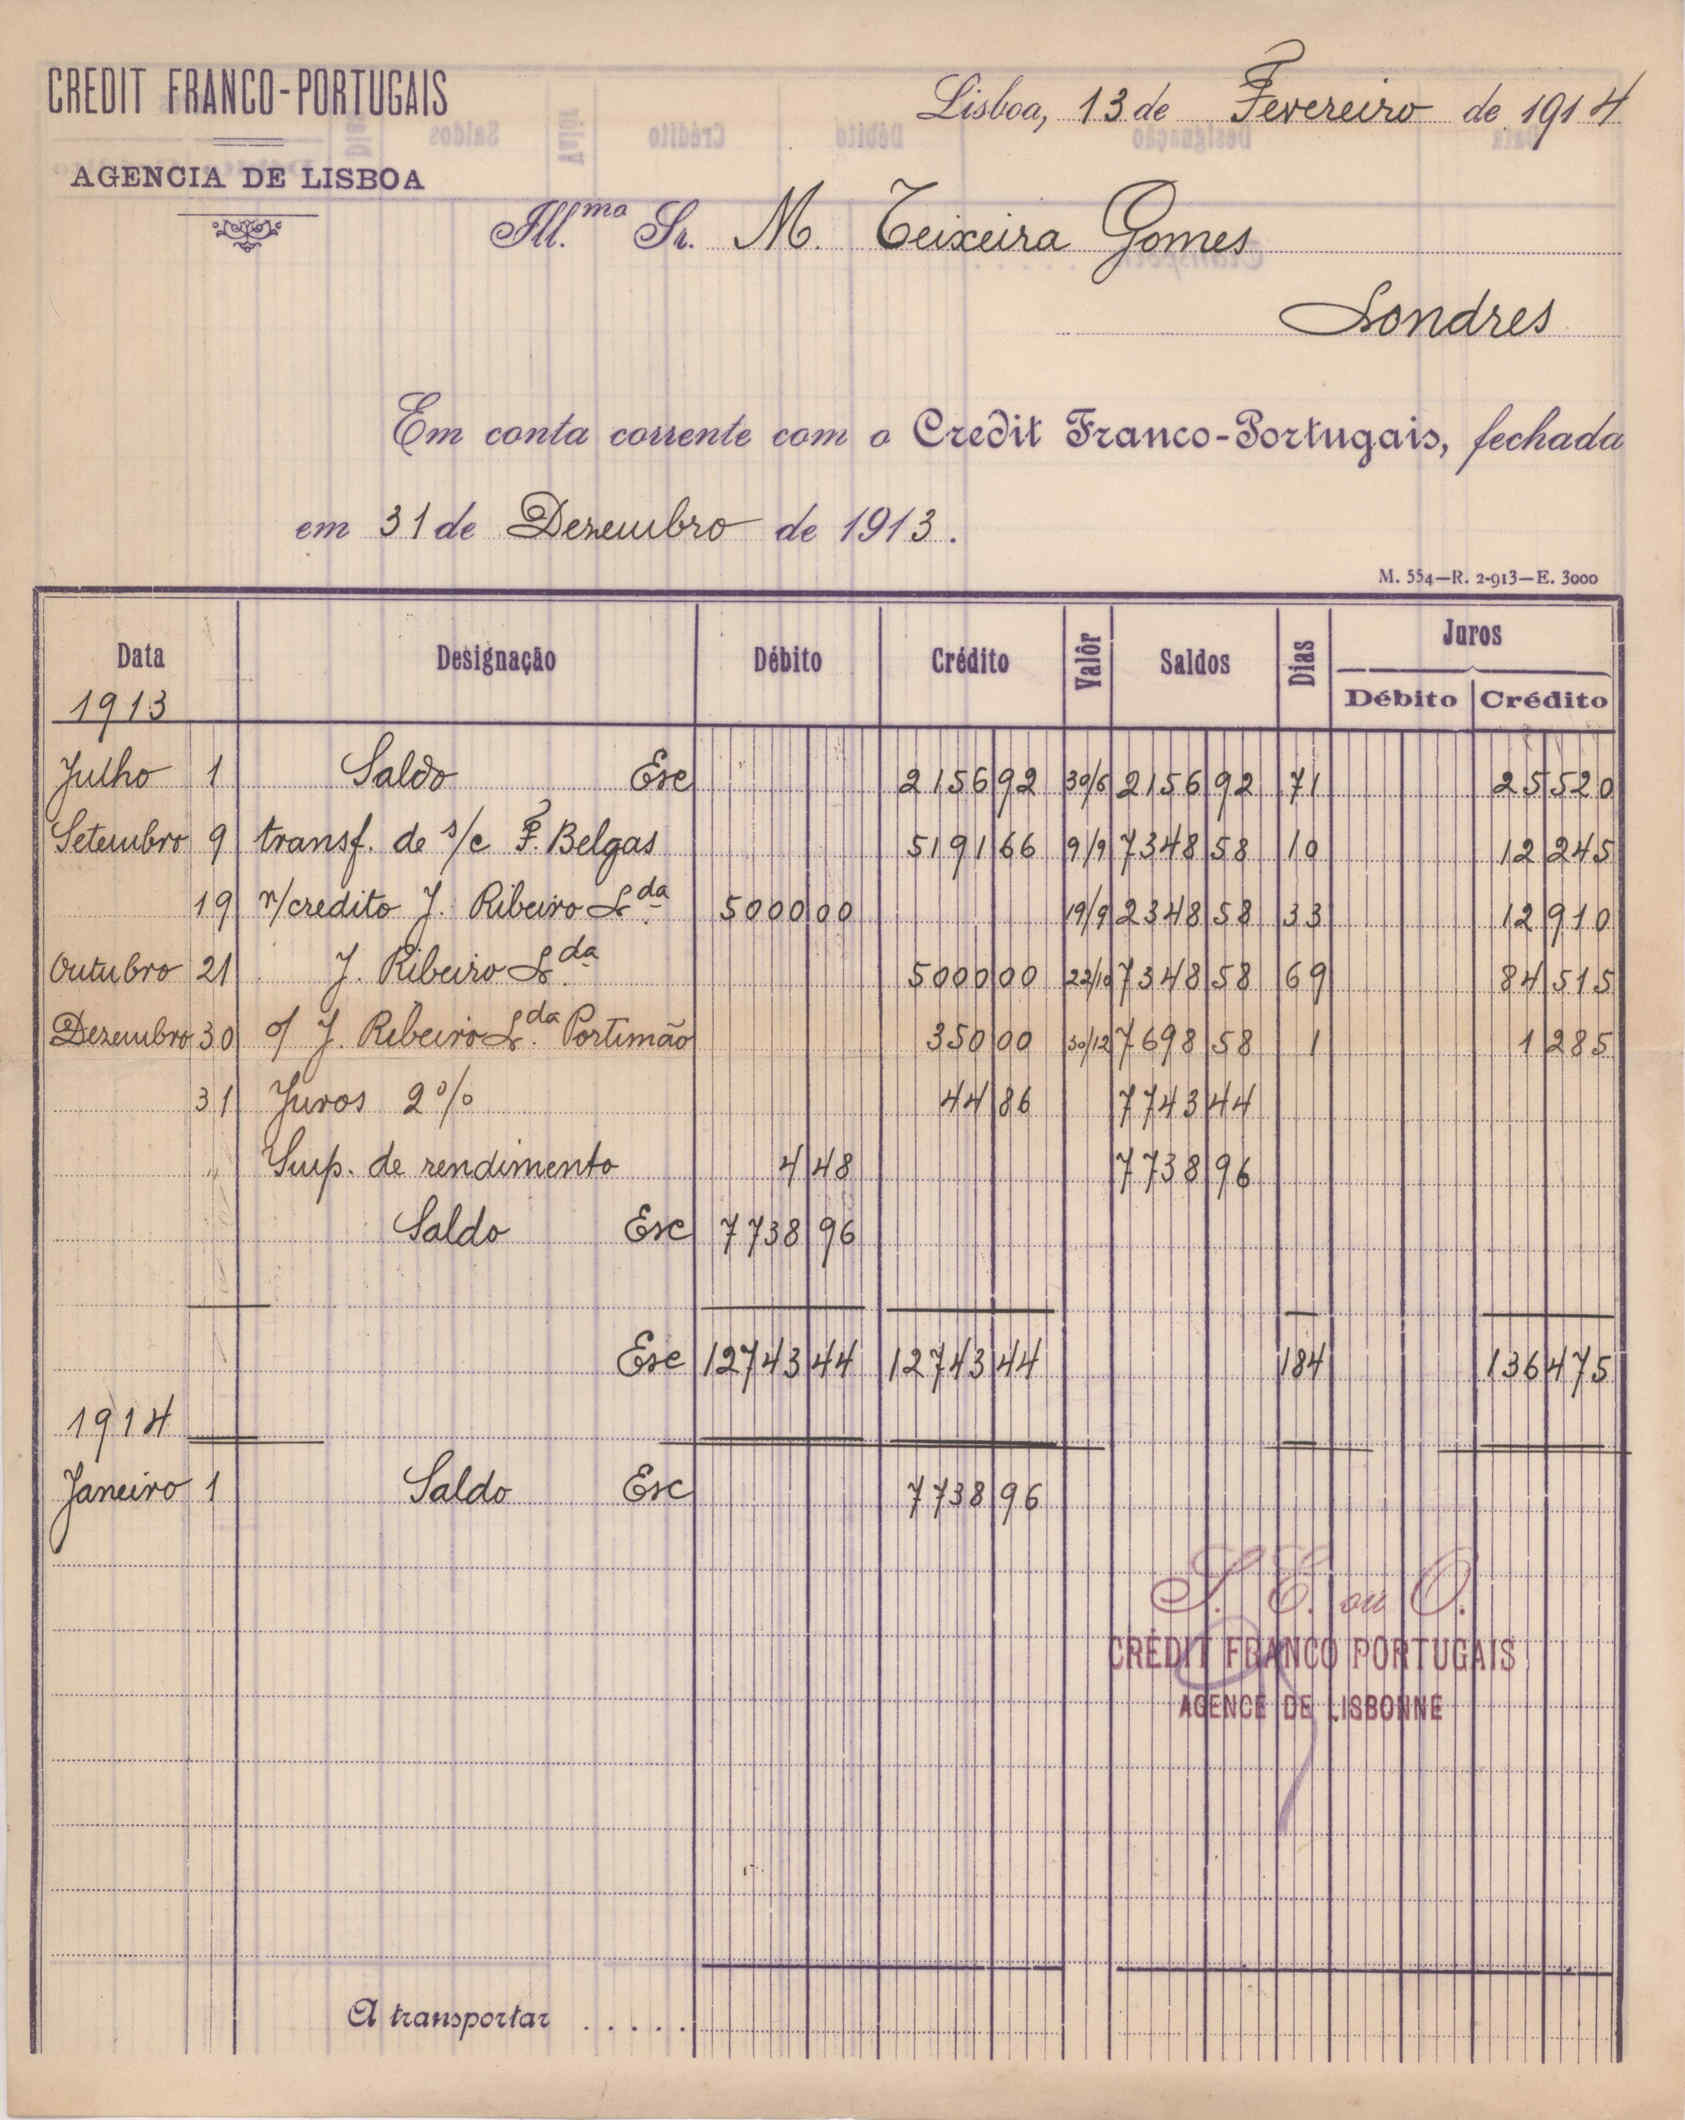 CREDIT FRANCO-PORTUGAIS
AGENCIA DE LISBOA
Lisboa, 13 de Fevereiro de 1914
Ill.mo Sr. M. Teixeira Gomes
Londres
Em conta corrente com o Credit Franco-Portugais, fechada
em 31 de Dezembro de 1913.
M. 554—R. 2-913—E. 3000
Data Designação Débito Crédito Valôr Saldos Dias Juros
Débito Crédito
1913
Julho 1 Saldo Esc 2156 92 30/6 2156 92 71 25 520
Setembro 9 transf. de s/c F. Belgas 5191 66 9/9 7348 58 10 12 245
19 n/credito J. Ribeiro Lda 5000 00 19/9 2348 58 33 12 910
Outubro 21 J. Ribeiro Lda 5000 00 22/10 7348 58 69 84 515
Dezembro 30 o/ J. Ribeiro Lda Portimão 350 00 30/12 7698 58 1 1 285
31 Juros 2% 44 86 7743 44
" Imp. de rendimento 4 48 7738 96
Saldo Esc 7738 96
Esc 12743 44 12743 44 184 136 475
1914
Janeiro 1 Saldo Esc 7738 96
S. E. ou O.
CRÉDIT FRANCO PORTUGAIS
AGENCE DE LISBONNE
A transportar . . . . .